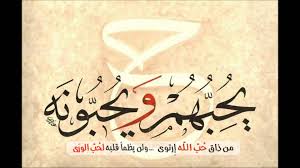 يُحِبُّهُمْ وَيُحِبُّونَهُ
من ذاق حُبّ الله إرتوى ...ولن يظمأ قلبه لحُبّ الورى